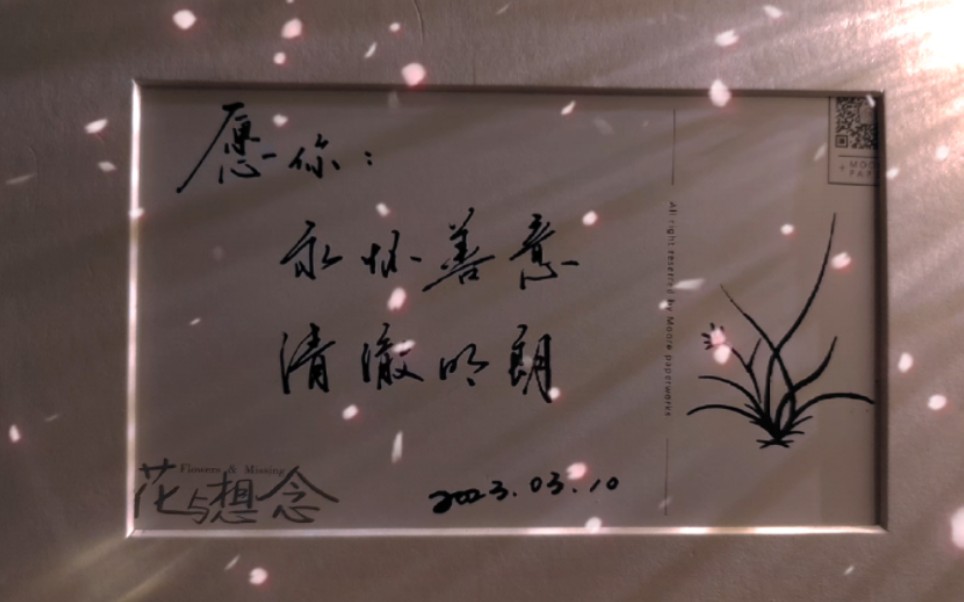 愿你：
永怀善意
清澈明朗
2023.03.10
Flowers & Missing
花与想念
All right reserved by Moore paperworks